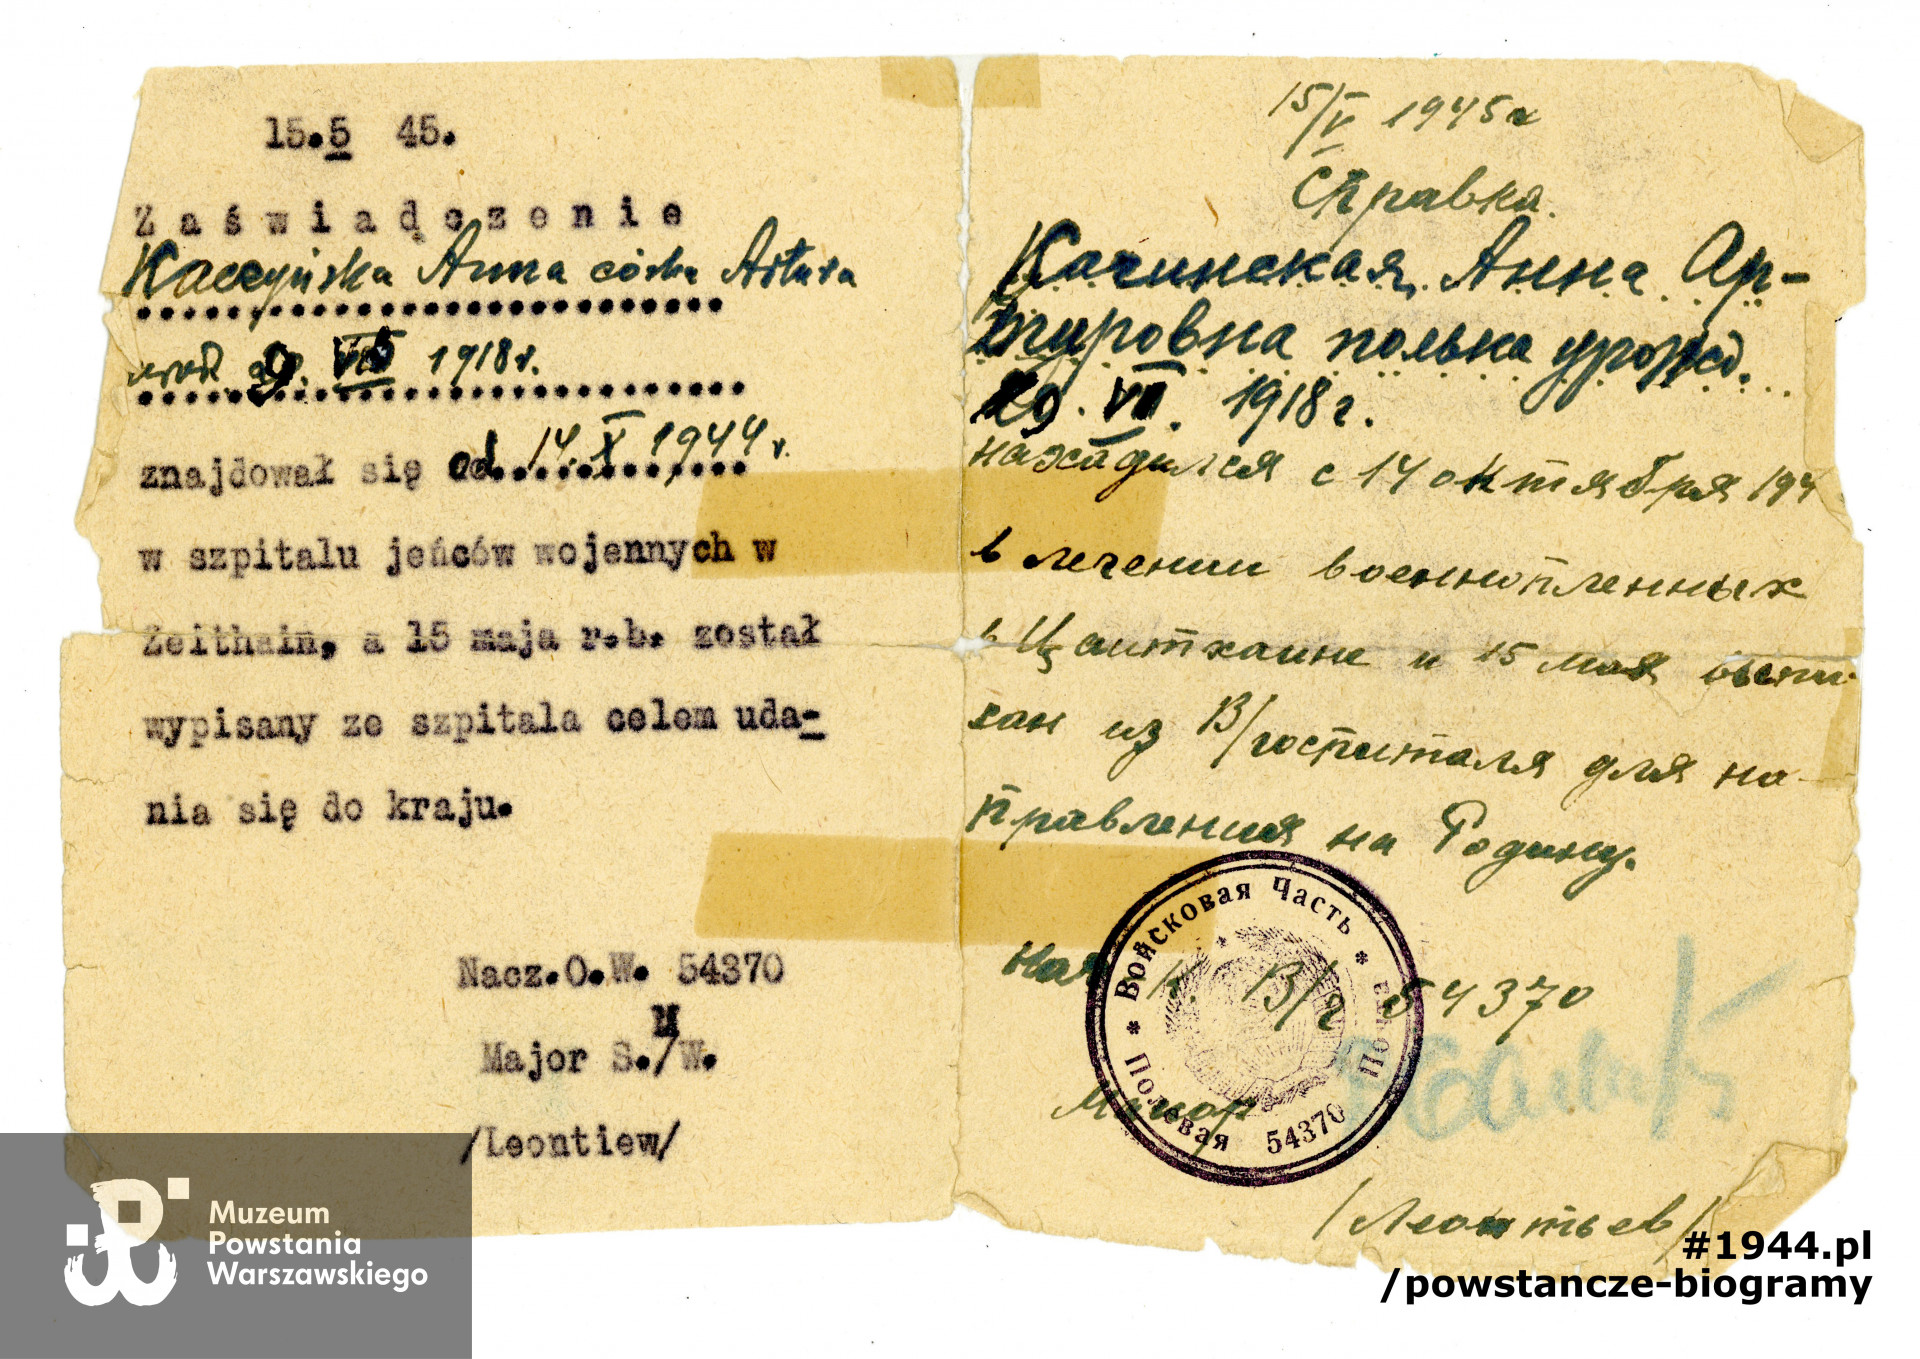 15.5 45.
Zaświadczenie
Kaczyńska Anna córka Artura
1918r.
znajdował się od 14. X 1944 r.
w szpitalu jeńców wojennych w
Zeithain, a 15 maja r.b. został
wypisany ze szpitala celem uda-
nia się do kraju.
Nacz.O.W. 54370
Major S./W.
M
/Leontiew/
15/V 1945г
Справка.
Качинская Анна Ар-
туровна полька урожд.
VII. 1918г.
находился с 14 октября 194
в лечении военнопленных
в Цаитхаине и 15 мая выпи
сан из В/госпиталя для на-
правления на Родину.
Нач К. В/г 54370
Маиор
/Леонтьев/
* Войсковая Часть * Полевая Почта 54370
Muzeum
Powstania
Warszawskiego
#1944.pl
/powstancze-biogramy